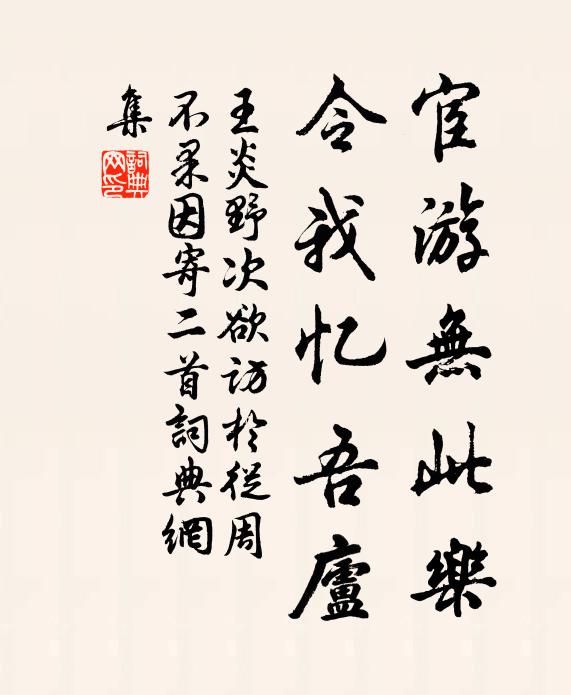 宦游無此樂
令我忆吾廬
王炎野次欲访於從周
不果因寄二首詞典網
集
詞典网印